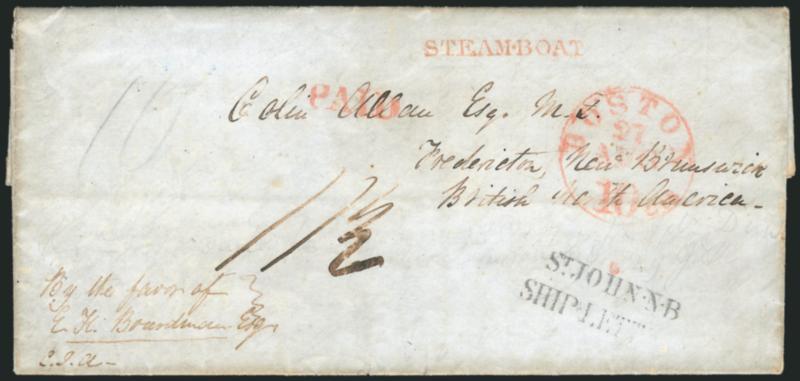 STEAM·BOAT
PAID
BOSTON
27
10
10
Colin Allan Esq. M.D.
Fredericton, New Brunswick
British North America-
1/1½
By the favor of
E. K. Boardman Esq.
ST JOHN·N·B
SHIP·LETT